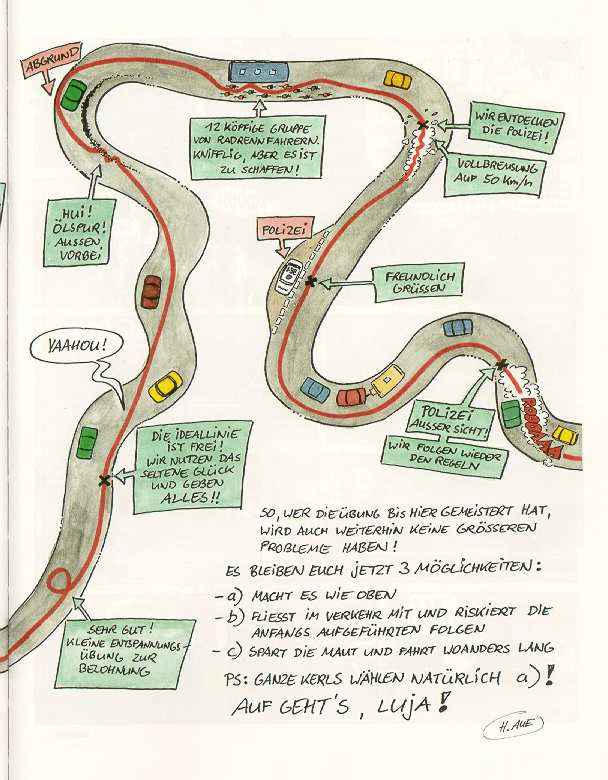 ABGRUND
12 KÖPFIGE GRUPPE
VON RADRENNFAHRERN.
KNIFFLIG, ABER ES IST
ZU SCHAFFEN!
WIR ENTDECKEN
DIE POLIZEI!
VOLLBREMSUNG
AUF 50 Km/h
HUI!
ÖLSPUR!
AUSSEN
VORBEI
POLIZEI
FREUNDLICH
GRÜSSEN
YAAHOU!
POLIZEI
AUSSER SICHT!
WIR FOLGEN WIEDER
DEN REGELN
ROOOAAR
DIE IDEALLINIE
IST FREI!
WIR NUTZEN DAS
SELTENE GLÜCK
UND GEBEN
ALLES!!
SEHR GUT!
KLEINE ENTSPANNUNGS-
ÜBUNG ZUR
BELOHNUNG
SO, WER DIE ÜBUNG BIS HIER GEMEISTERT HAT,
WIRD AUCH WEITERHIN KEINE GRÖSSEREN
PROBLEME HABEN!
ES BLEIBEN EUCH JETZT 3 MÖGLICHKEITEN:
- a) MACHT ES WIE OBEN
- b) FLIESST IM VERKEHR MIT UND RISKIERT DIE
ANFANGS AUFGEFÜHRTEN FOLGEN
- c) SPART DIE MAUT UND FAHRT WOANDERS LANG
PS: GANZE KERLS WÄHLEN NATÜRLICH a)!
AUF GEHT'S, LUJA!
H. AUÉ